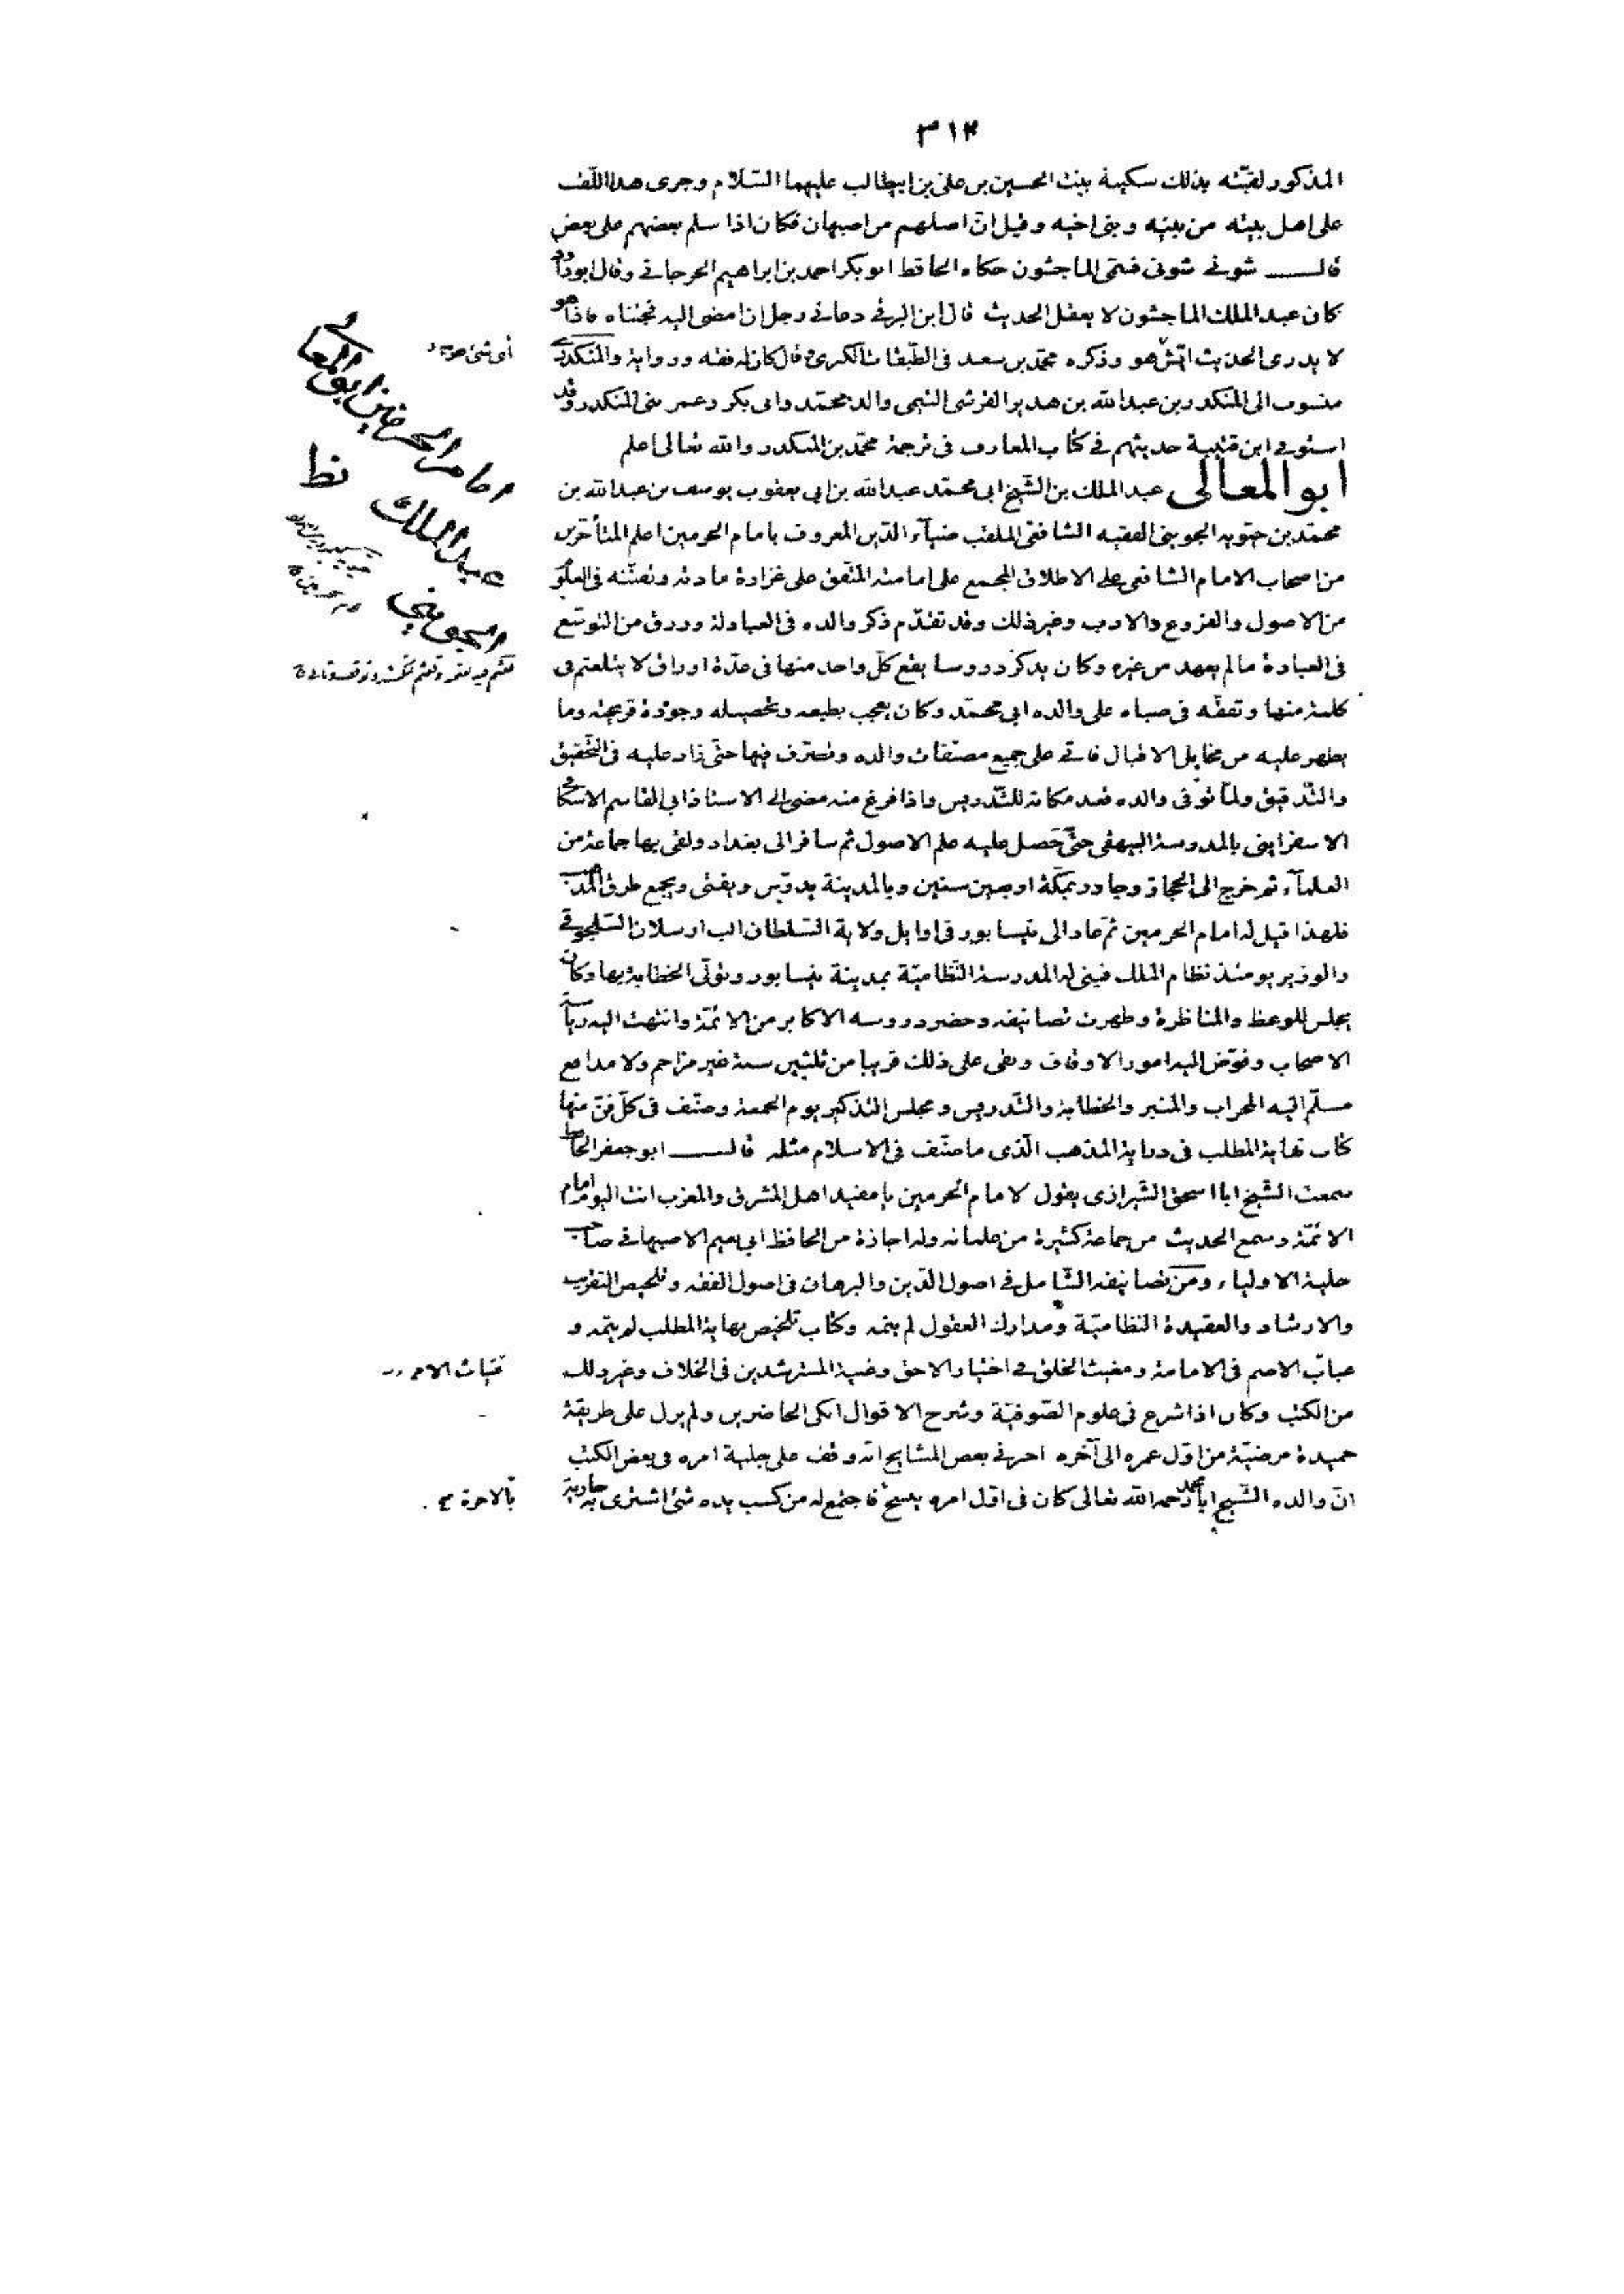 ٣١٢
المذكور لقبته بذلك سكينة بنت الحسين بن على بن ابيطالب عليهما السّلام وجرى هذا اللّقب
على اهل بيته من بنيه وبنى اخيه وقيل انّ اصلهم من اصبهان فكان اذا سلم بعضهم على بعض
قال شونى شونى فسمّى الماجشون حكاه الحافظ ابو بكر احمد بن ابراهيم الجرجانى وقال ابو داود
كان عبد الملك الماجشون لا يعقل الحديث قال ابن البرقى دعانى رجل ان امضى اليه فجئناه فاذا هو
لا يدرى الحديث ايش هو وذكره محمّد بن سعد فى الطّبقات الكبرى وقال كان له فقه ورواية والمنكدرى
منسوب الى المنكدر بن عبد الله بن هدير القرشى التيمى والد محمّد وابى بكر وعمر بنى المنكدر وقد
استوفى ابن قتيبة حديثهم فى كتاب المعارف فى ترجمة محمّد بن المنكدر والله تعالى اعلم
ابو المعالى عبد الملك بن الشّيخ ابى محمّد عبد الله بن ابى يعقوب يوسف بن عبد الله بن
محمّد بن حيّويه الجوينى الفقيه الشافعى الملقب ضيآء الدّين المعروف بامام الحرمين اعلم المتأخّرين
من اصحاب الامام الشافعى على الاطلاق المجمع على امامته المتّفق على غزارة مادته وتفنّنه فى العلوم
من الاصول والفروع والادب وغير ذلك وقد تقدّم ذكر والده فى العبادلة ورزق من التوسّع
فى العبادة ما لم يعهد من غيره وكان يذكر دروسا يقع كلّ واحد منها فى عدّة اوراق لا يتلعثم فى
كلمة منها وتفقّه فى صباه على والده ابى محمّد وكان يعجب بطبعه وتحصيله وجودة قريحته وما
يظهر عليه من مخايل الاقبال فاتى على جميع مصنّفات والده وتصرّف فيها حتّى زاد عليه فى التّحقيق
والتّدقيق ولمّا توفى والده قعد مكانه للتّدريس واذا فرغ منه مضى الى الاستاذ ابى القاسم الاسكافى
الاسفراينى بالمدرسة البيهقى حتّى حصل عليه علم الاصول ثم سافر الى بغداد ولقى بها جماعة من
العلمآء ثم خرج الى الحجاز وجاور بمكّة اربع سنين وبالمدينة يدرّس ويفتى ويجمع طرق المذهب
فلهذا قيل له امام الحرمين ثمّ عاد الى نيسابور فى اوايل ولاية السّلطان الب ارسلان السّلجوقى
والوزير يومئذ نظام الملك فبنى له المدرسة النّظاميّة بمدينة نيسابور وتولّى الخطابة بها وكان
يجلس للوعظ والمناظرة وظهرت تصانيفه وحضر دروسه الاكابر من الائمّة وانتهت اليه رياسة
الاصحاب وفوّض اليه امور الاوقاف وبقى على ذلك قريبا من ثلثين سنة غير مزاحم ولا مدافع
مسلّم اليه المحراب والمنبر والخطابة والتّدريس ومجلس التذكير يوم الجمعة وصنّف فى كلّ فنّ منها
كتاب نهاية المطلب فى دراية المذهب الّذى ما صنّف فى الاسلام مثله قال ابو جعفر الحافظ
سمعت الشّيخ ابا اسحق الشّيرازى يقول لامام الحرمين يا مفيد اهل المشرق والمغرب انت اليوم امام
الائمّة وسمع الحديث من جماعة كثيرة من علمائه وله اجازة من الحافظ ابى نعيم الاصبهانى صاحب
حلية الاولياء ومن تصانيفه الشّامل فى اصول الدّين والبرهان فى اصول الفقه وتلخيص التقريب
والارشاد والعقيدة النظاميّة ومدارك العقول لم يتمه وكتاب تلخيص نهاية المطلب لم يتمه و
غياث الامم فى الامامة ومغيث الخلق فى اختيار الاحق وغنية المسترشدين فى الخلاف وغير ذلك
من الكتب وكان اذا شرع فى علوم الصّوفيّة وشرح الاقوال ابكى الحاضرين ولم يزل على طريقة
حميدة مرضيّة من اوّل عمره الى آخره اخبرنى بعض المشايخ انّه وقف على جلية امره فى بعض الكتب
انّ والده الشّيخ ابا محمد رحمه الله تعالى كان فى اوّل امره ينسخ فاجتمع له من كسب يده شئ اشترى به جارية
اى شئ هو
امام الحرمين ابو المعالى
عبد الملك
الجوينى
نظ
غياث الامم
بالاجرة